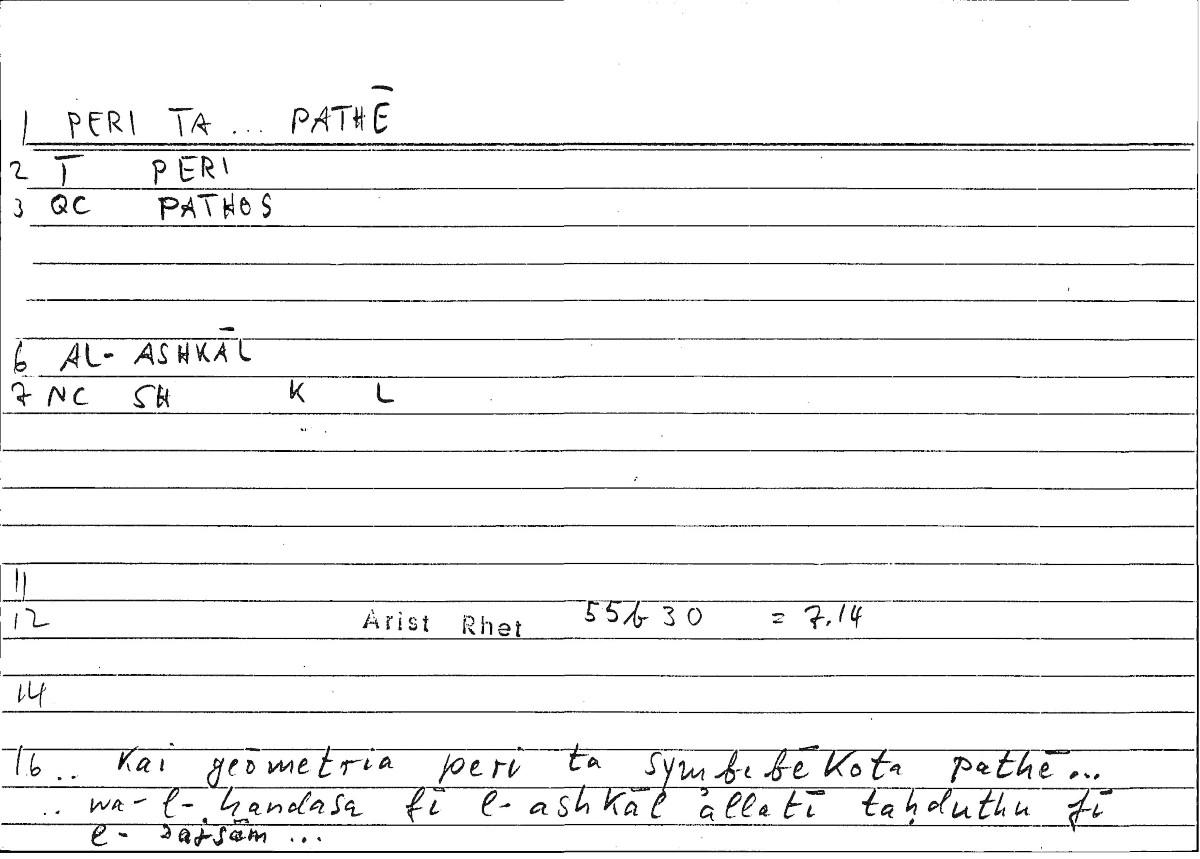 1 PERI TA ... PATHĒ
2 T PERI
3 QC PATHOS
6 AL- ASHKĀL
7 NC SH K L
11
12 Arist Rhet 55b30 = 7.14
14
16 .. Kai geōmetria peri ta symbebēkota pathē...
.. wa-l-handasa fī l-ashkāl allatī taḥduthu fī
l-